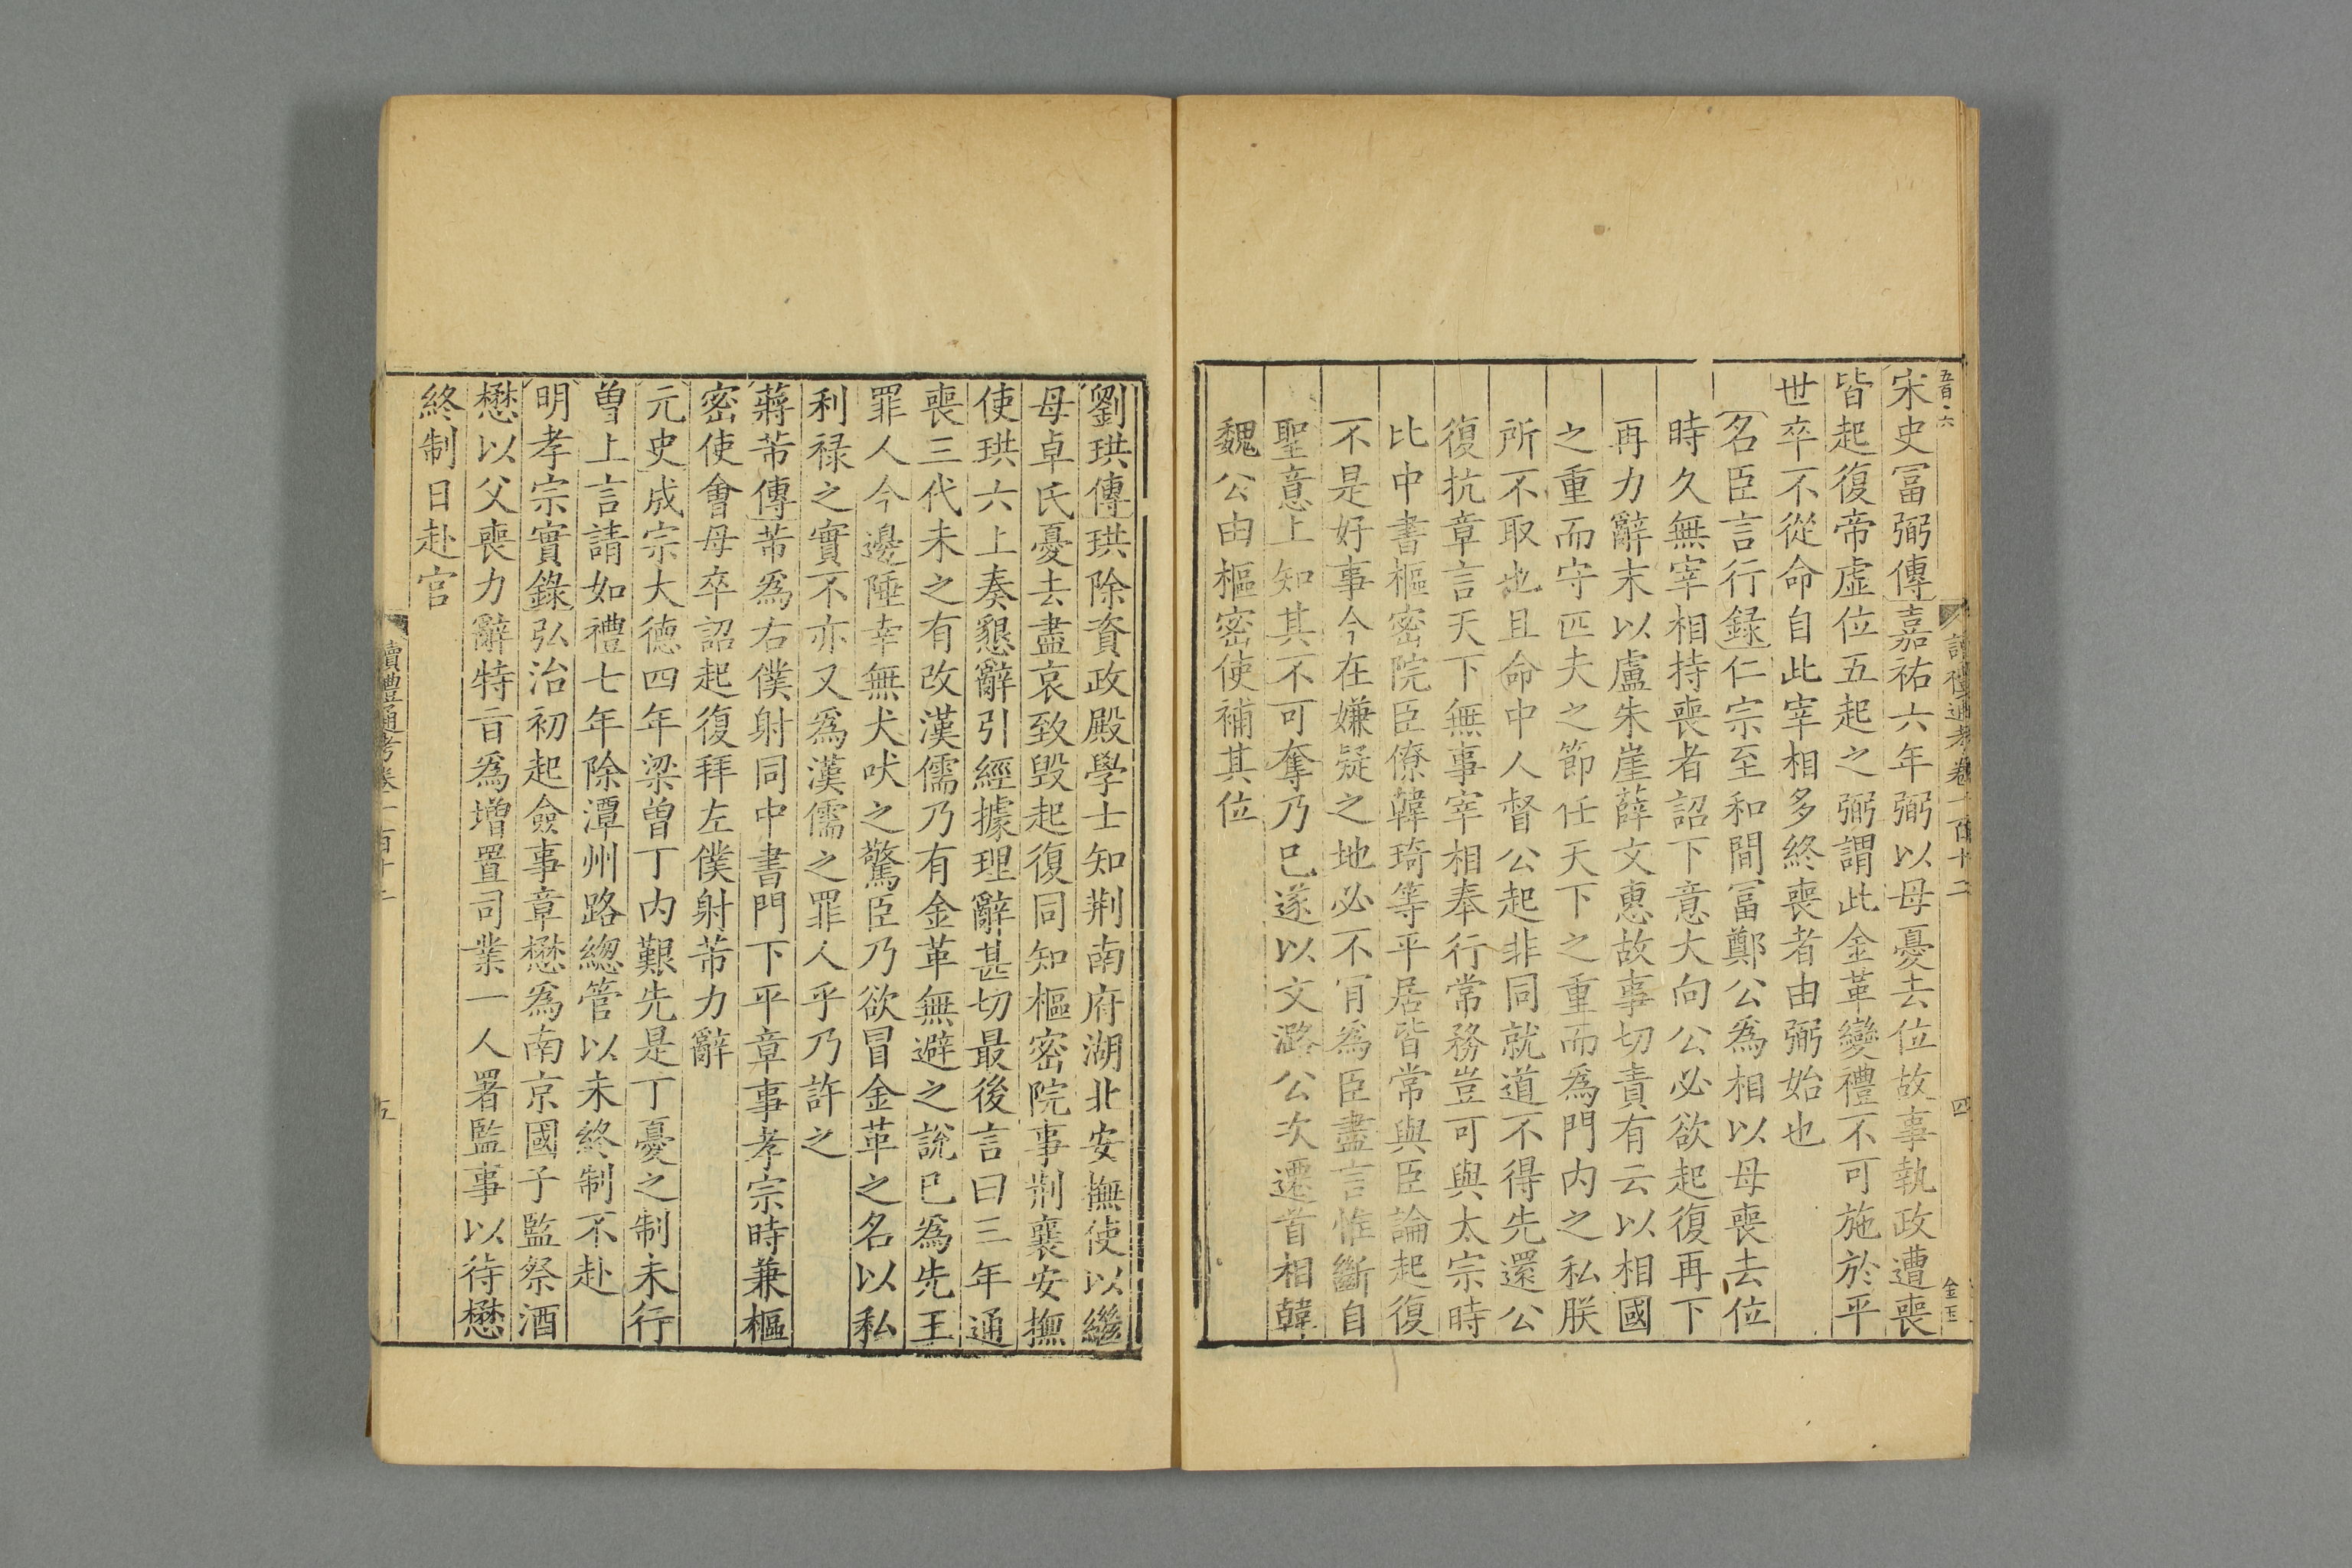 五百·六
讀禮通考卷一百十二
四
金玉
宋史富弼傳嘉祐六年弼以母憂去位故事執政遭喪
皆起復帝虛位五起之弼謂此金革變禮不可施於平
世卒不從命自此宰相多終喪者由弼始也
名臣言行錄仁宗至和間富鄭公為相以母喪去位
時久無宰相持喪者詔下意大向公必欲起復再下
再力辭末以盧朱崖薛文惠故事切責有云以相國
之重而守匹夫之節任天下之重而為門內之私朕
所不取也且命中人督公起非同就道不得先還公
復抗章言天下無事宰相奉行常務豈可與太宗時
比中書樞密院臣僚韓琦等平居皆常與臣論起復
不是好事今在嫌疑之地必不肯為臣盡言惟斷自
聖意上知其不可奪乃已遂以文潞公次遷首相韓
魏公由樞密使補其位
劉珙傳珙除資政殿學士知荆南府湖北安撫使以繼
母卓氏憂去盡哀致毀起復同知樞密院事荆襄安撫
使珙六上奏懇辭引經據理辭甚切最後言曰三年通
喪三代未之有改漢儒乃有金革無避之說已為先王
罪人今邊陲幸無犬吠之驚臣乃欲冒金革之名以私
利祿之實不亦又為漢儒之罪人乎乃許之
蔣芾傳芾為右僕射同中書門下平章事孝宗時兼樞
密使會母卒詔起復拜左僕射芾力辭
元史成宗大德四年梁曾丁內艱先是丁憂之制未行
曾上言請如禮七年除潭州路總管以未終制不赴
明孝宗實錄弘治初起僉事章懋為南京國子監祭酒
懋以父喪力辭特旨為增置司業一人署監事以待懋
終制日赴官
讀禮通考卷一百十二
五